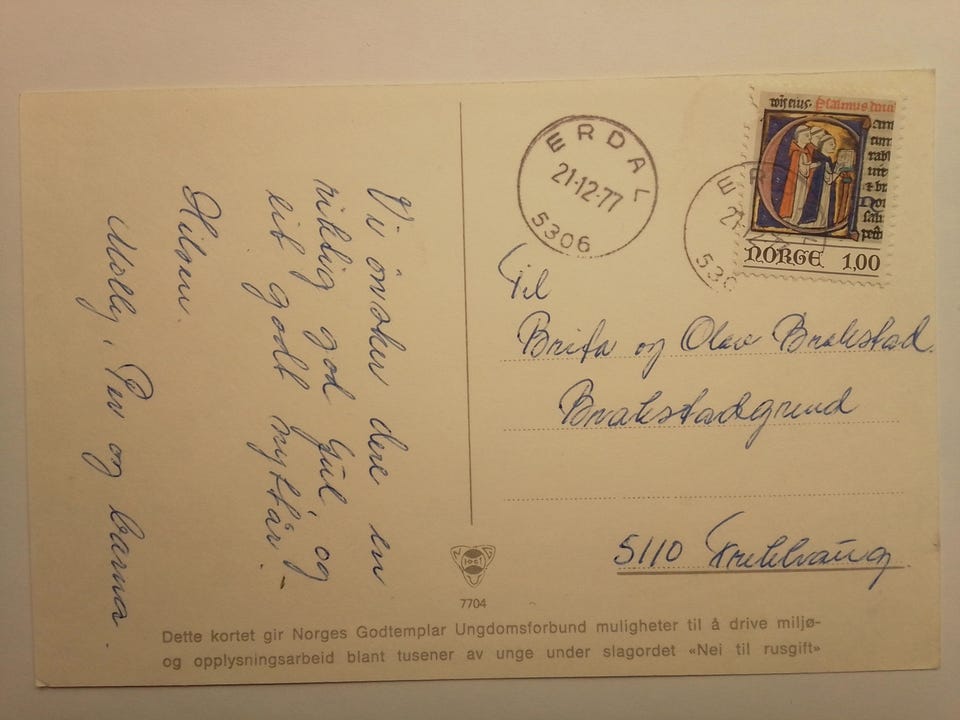 Vi önsker dere en
riktig god Jul og
eit godt nyttår.-
Hilsen.
Molly, Per og barna
ERDAL
21-12-77
5306
ER
21-12
530
wis eius. Psalmus
NORGE 1,00
Til
Brita og Olav Brakstad.
Brakstadgrend
5110 Frekhaug
7704
Dette kortet gir Norges Godtemplar Ungdomsforbund muligheter til å drive miljø-
og opplysningsarbeid blant tusener av unge under slagordet «Nei til rusgift»